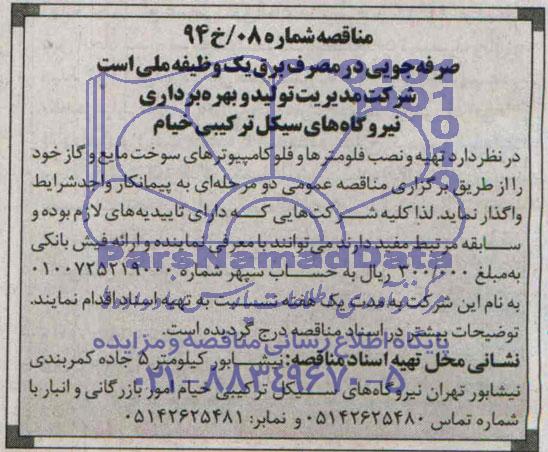 مناقصه شماره ۰۸/خ ۹۴
صرفه جویی در مصرف برق یک وظیفه ملی است
شرکت مدیریت تولید و بهره برداری
نیروگاه های سیکل ترکیبی خیام
در نظر دارد تهیه و نصب فلومترها و فلوکامپیوترهای سوخت مایع و گاز خود
را از طریق برگزاری مناقصه عمومی دو مرحله ای به پیمانکار واجد شرایط
واگذار نماید. لذا کلیه شرکت هایی که دارای تاییدیه های لازم بوده و
سابقه مرتبط مفید دارند می توانند با معرفی نماینده و ارائه فیش بانکی
ParsNamadData
به مبلغ ۳۰۰/۰۰۰ ریال به حساب سپهر شماره ۰۱۰۰۷۲۵۲۱۹۰۰۰
به نام این شرکت به مدت یک هفته نسبت به تهیه اسناد اقدام نمایند.
توضیحات بیشتر در اسناد مناقصه درج گردیده است.
پایگاه اطلاع رسانی مناقصه و مزایده
نشانی محل تهیه اسناد مناقصه: نیشابور کیلومتر ۵ جاده کمربندی
۰۲۱-۸۸۳۴۹۶۷۰-۵
نیشابور تهران نیروگاه های سیکل ترکیبی خیام امور بازرگانی و انبار با
شماره تماس ۰۵۱۴۲۶۲۵۴۸۰ و نمابر: ۰۵۱۴۲۶۲۵۴۸۱